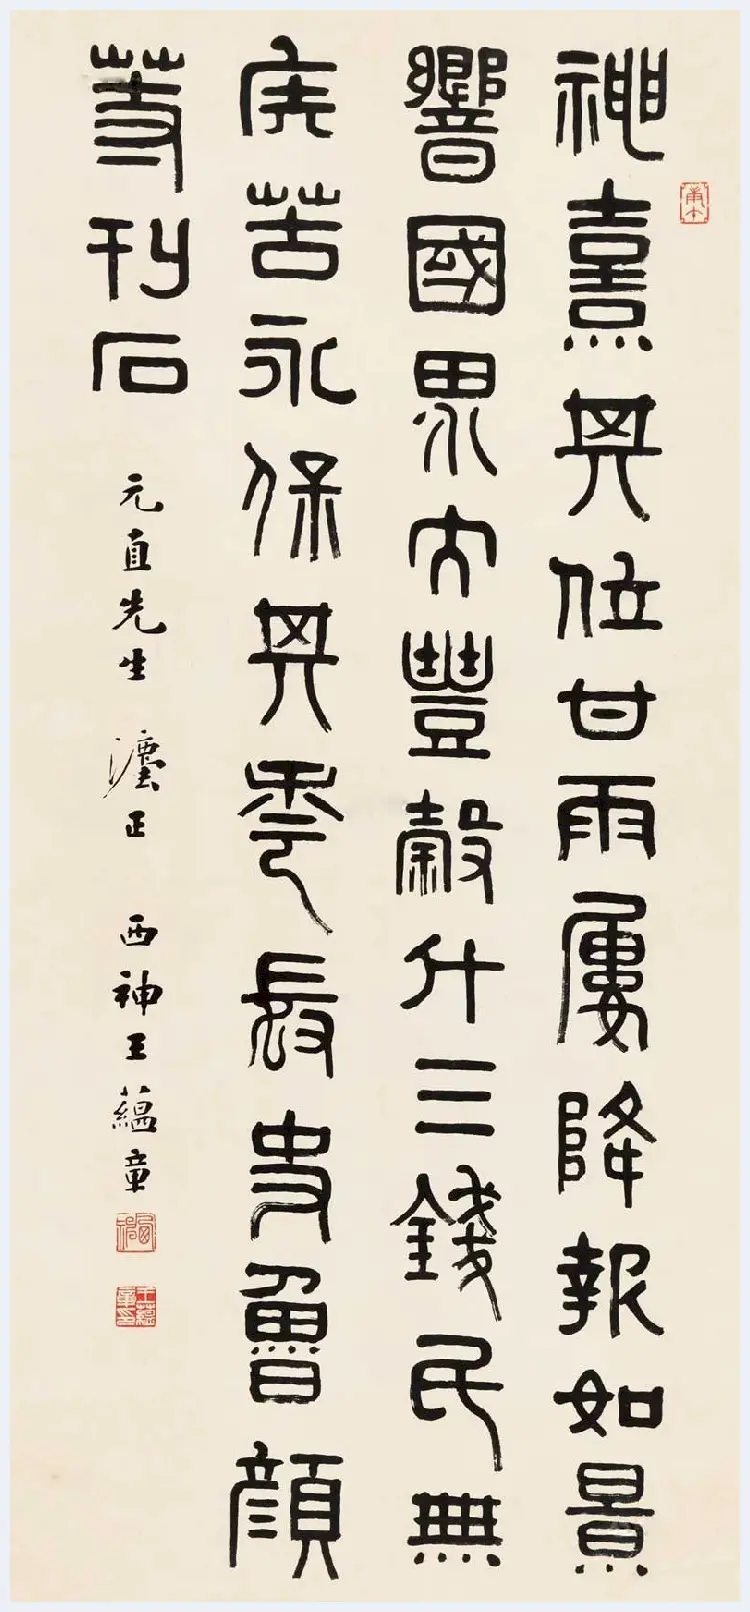 神熹其位甘雨屢降報如景
響國界大豐穀什三錢民無
疾苦永保其年長史魯顏
等刊石
元直先生 灋正 西神王蘊章
王蘊章印